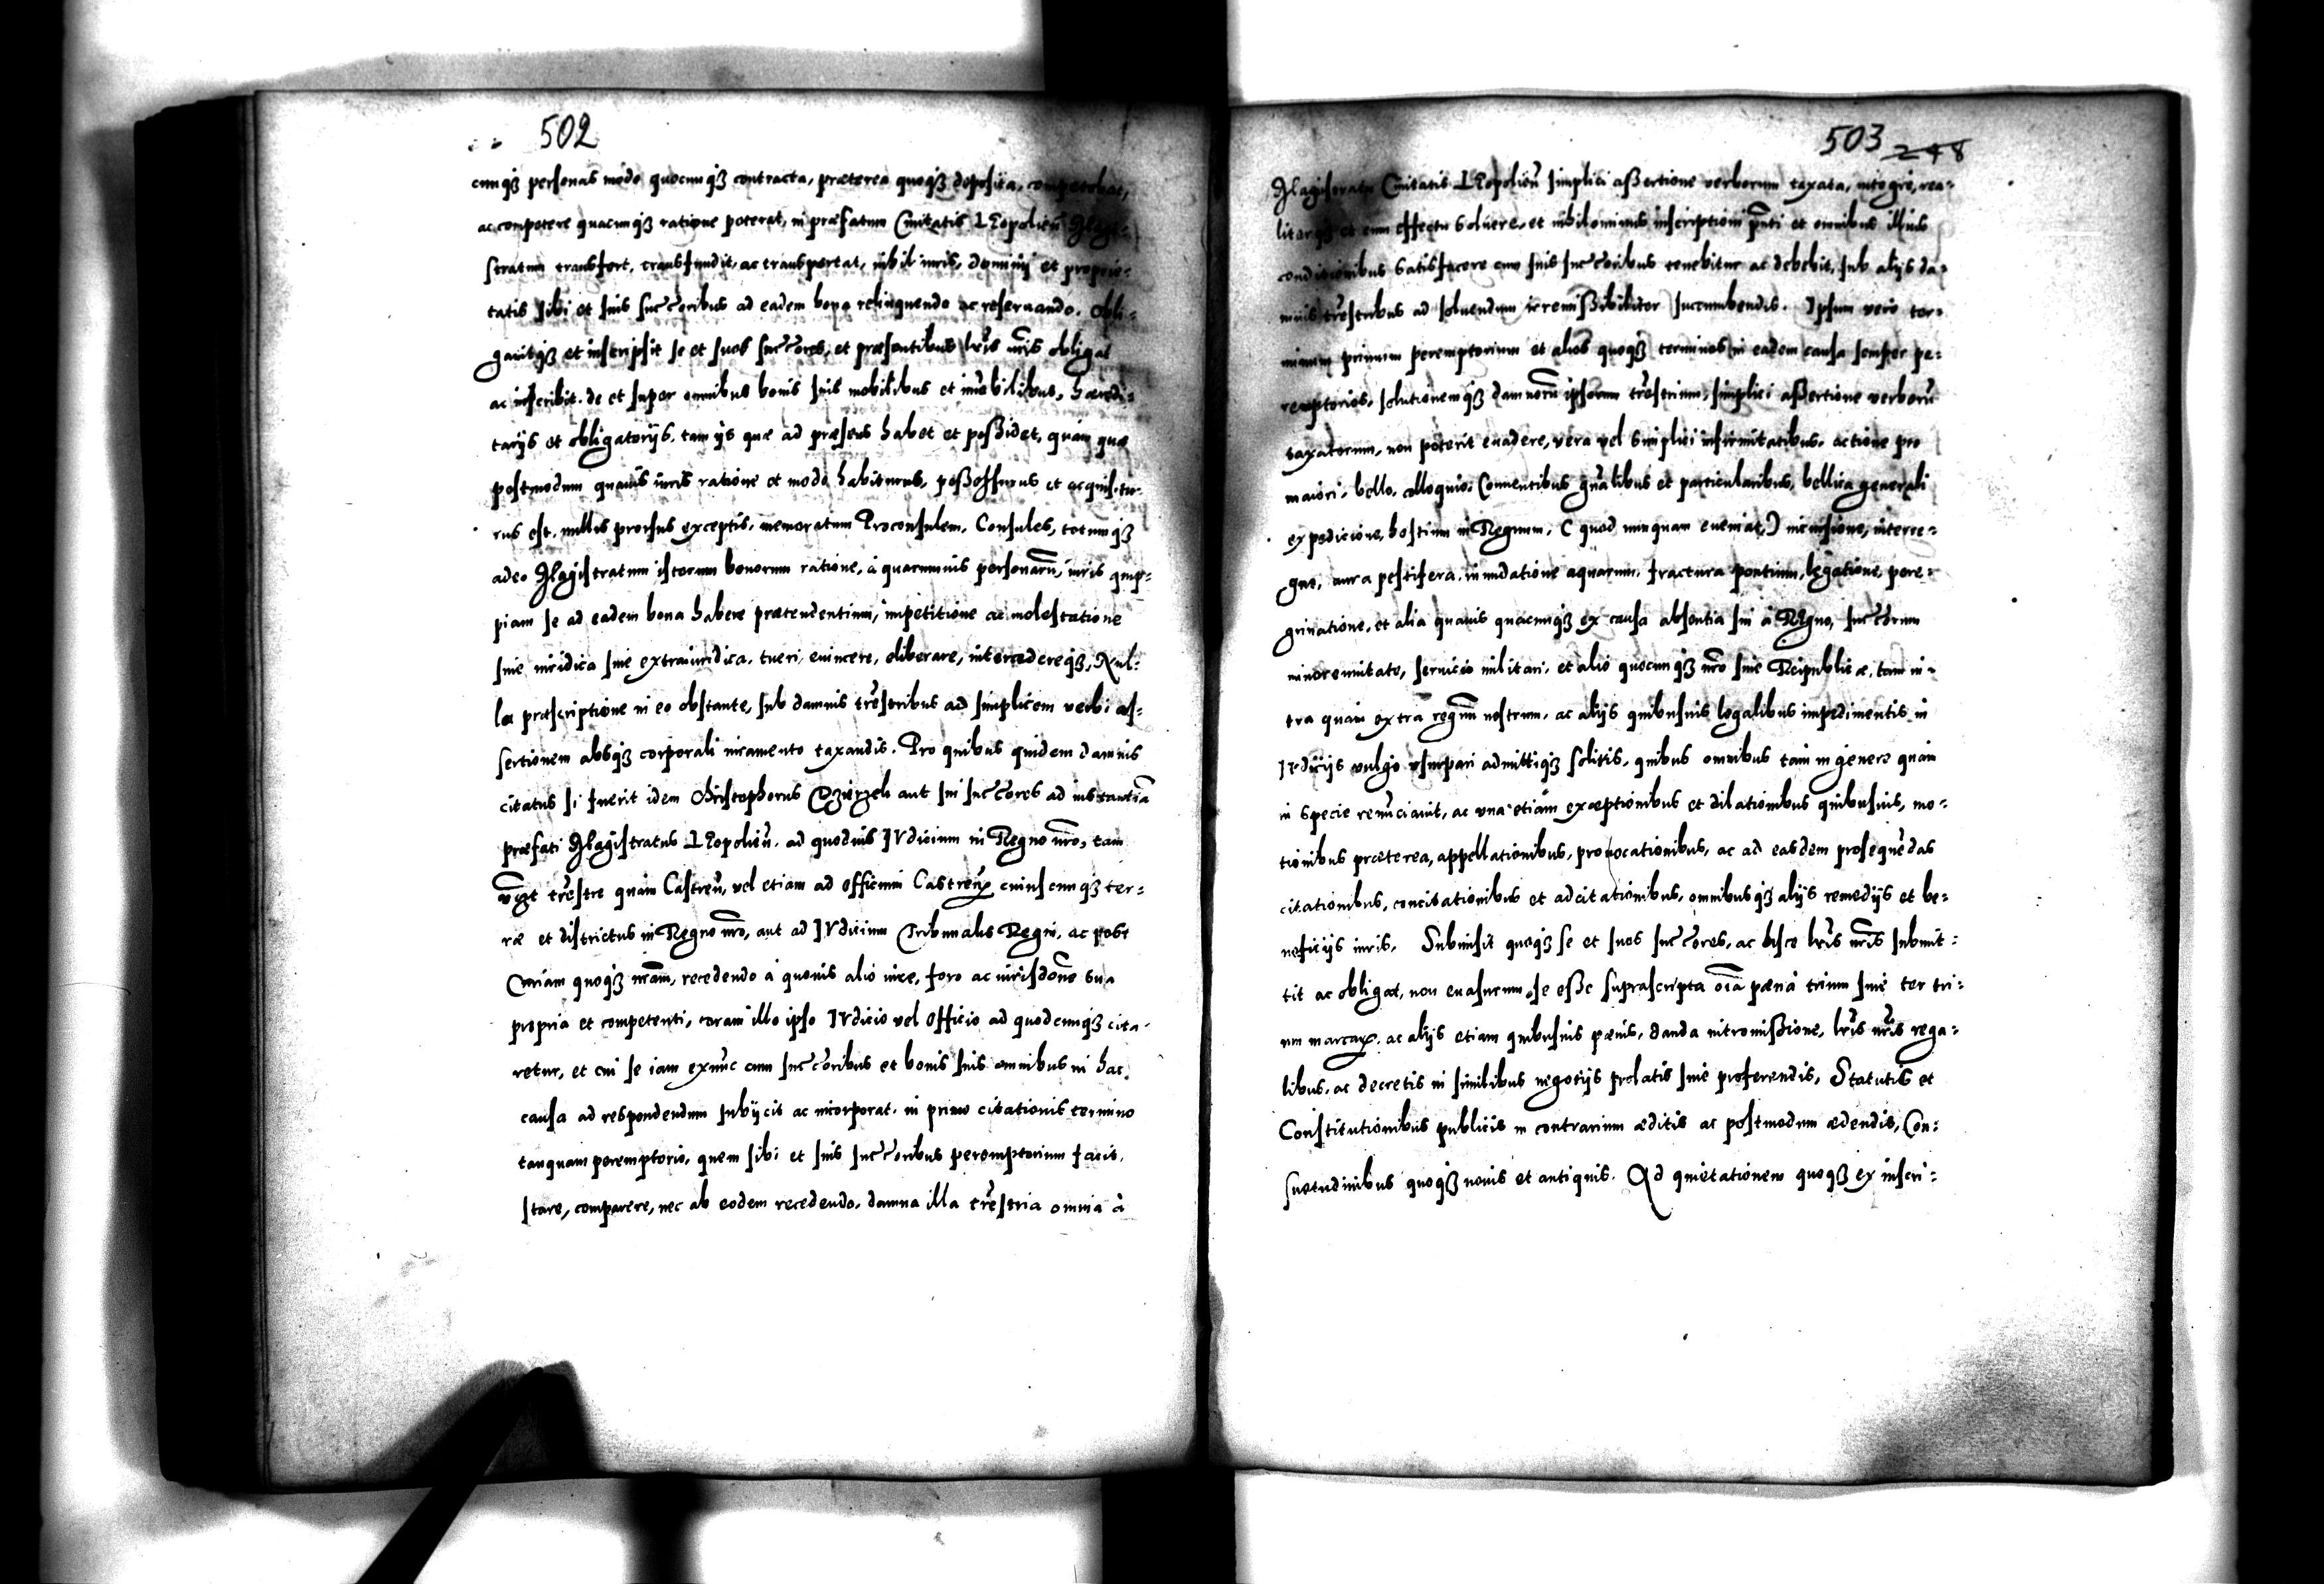 502
cunqȝ personas modo quocunqȝ contracta, præterea quoqȝ deposita, competebat,
ac competere quacunqȝ ratione poterat, in præfatum Ciuitatis Leopolień Magi-
stratum transfert, transfundit, ac transportat, nihil iuris, dominij et proprie-
tatis sibi et suis succoribus ad eadem bona relinquendo ac reseruando. Obli-
gauitqȝ et inscripsit se et suos succores, et præsentibus lris nris obligat
ac inscribit. de et super omnibus bonis suis mobilibus et imobilibus, hæredi-
tarijs et obligatorijs, tam ijs quæ ad præsens habet et possidet, quàm quæ
postmodum quauis iuris ratione et modo habiturus, possessurus et acquisitu-
rus est, nullis prorsus exceptis, memoratum Proconsulem, Consules, totumqȝ
adeo Magistratum istorum bonorum ratione, à quarumuis personarũ, iuris quip-
piam se ad eadem bona habere prætendentium, impetitione ac molestatione
siue iuridica siue extraiuridica, tueri, euincere, eliberare, intercedereqȝ, Nul-
la præscriptione in eo obstante, sub damnis trestribus ad simplicem verbi as-
sertionem absqȝ corporali iuramento taxandis. Pro quibus quidem damnis
citatus si fuerit idem Christophorus aut sui succores ad instantiã
præfati Magistratus Leopolień. ad quoduis Iudicium in Regno nro, tam
vȝt trestre quàm Castreñ, vel etiam ad officium Castreñ cuiuscunqȝ ter-
ræ et districtus in Regno nro, aut ad Iudicium Tribunalis Regni, ac post
Curiam quoqȝ nram, recedendo à quouis alio iure, foro ac iurisdone sua
propria et competenti, coram illo ipso Iudicio vel officio ad quodcunqȝ cita-
retur, et cui se iam exnũc cum succoribus et bonis suis omnibus in hac
causa ad respondendum subijcit ac incorporat, in primo citationis termino
tanquam peremptorio, quem sibi et suis succoribus peremptorium facit,
stare, comparere, nec ab eodem recedendo, damna illa trestria omnia à
503 248
Magistratu Ciuitatis Leopolień simplici assertione verborum taxata, integrè, rea-
literqȝ et cum effectu soluere, et nihilominus inscriptioni pnti et omnibus illius
conditionibus satisfacere cum suis succoribus tenebitur ac debebit, sub alijs da-
mnis trestribus ad soluendum irremissibiliter succumbendis. Ipsum vero ter-
minum primum peremptorium et alios quoqȝ terminos in eadem causa semper pe-
remptorios, solutionemqȝ damnorũ ipsorum trestrium, simplici assertione verborũ
taxatorum, non poterit euadere, vera vel simplici infirmitatibus, actione pro
maiori, bello, colloquio, Conuentibus gñalibus et particularibus, bellica generali
expedicione, hostium in Regnum, (quod nunquam eueniat,) incursione, interre-
gno, aura pestifera, inundatione aquarum, fractura pontium, legatione, pere-
grinatione, et alia quauis quacunqȝ ex causa absentia sui à Regno, succorum
minorennitate, seruicio militari, et alio quocunqȝ nro siue Reipublicæ, tam in-
tra quàm extra regnũ nostrum, ac alijs quibusuis legalibus impedimentis in
Iudicijs vulgo vsurpari admittiqȝ solitis, quibus omnibus tam in genere quàm
in specie renũciauit, ac vna etiàm exceptionibus et dilationibus quibusuis, mo-
tionibus præterea, appellationibus, prouocationibus, ac ad easdem prosequẽdas
citationibus, concitationibus et adcitationibus, omnibusqȝ alijs remedijs et be-
neficijs iuris. Submisit quoqȝ se et suos succores, ac hisce lris nris submit-
tit ac obligat, non euasurum se esse suprascripta oĩa pæna trium siue ter tri-
um marcaꝝ, ac alijs etiam quibusuis pænis, danda intromissione, lris nris rega-
libus, ac decretis in similibus negotijs prolatis siue proferendis, Statutis et
Constitutionibus publicis in contrarium æditis ac postmodum ædendis, Con-
suetudinibus quoqȝ nouis et antiquis. Ad quietationem quoqȝ ex inscri-